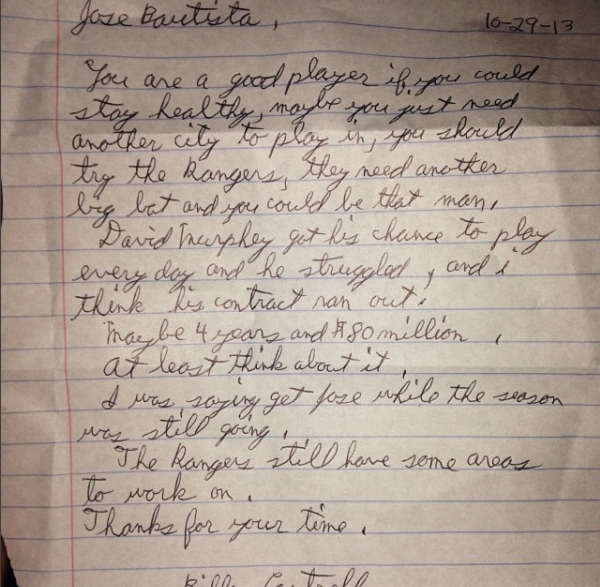 Jose Bautista, 10-29-13
You are a good player if you could
stay healthy, maybe you just need
another city to play in, you should
try the Rangers, they need another
big bat and you could be that man.
David Murphey got his chance to play
every day and he struggled, and i
think his contract ran out.
Maybe 4 years and $80 million,
at least think about it.
I was saying get Jose while the season
was still going.
The Rangers still have some areas
to work on.
Thanks for your time.